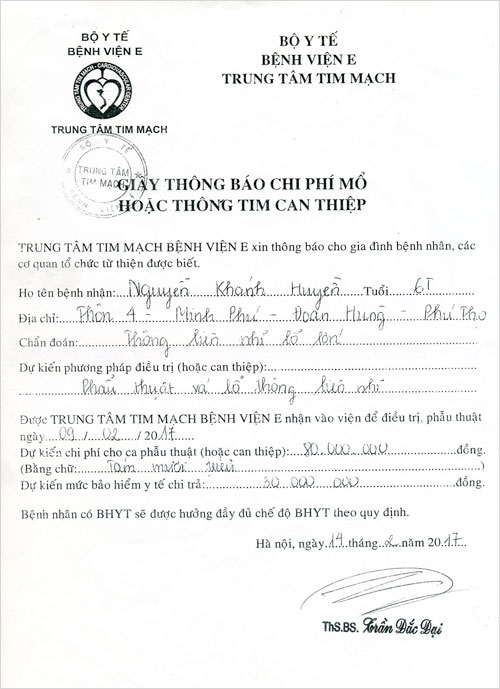 BỘ Y TẾ
BỆNH VIỆN E
TRUNG TÂM TIM MẠCH - CARDIOVASCULAR CENTER
TRUNG TÂM TIM MẠCH
BỘ Y TẾ
BỆNH VIỆN E
TRUNG TÂM TIM MẠCH
BỘ Y TẾ
TRUNG TÂM
TIM MẠCH
BỆNH VIỆN E
GIẤY THÔNG BÁO CHI PHÍ MỔ
HOẶC THÔNG TIM CAN THIỆP
TRUNG TÂM TIM MẠCH BỆNH VIỆN E xin thông báo cho gia đình bệnh nhân, các
cơ quan tổ chức từ thiện được biết.
Họ tên bệnh nhân: Nguyễn Khánh Huyền Tuổi 6T
Địa chỉ: Thôn 4 - Minh Phú - Đoan Hùng - Phú Thọ
Chẩn đoán: Thông liên nhĩ lỗ lớn
Dự kiến phương pháp điều trị (hoặc can thiệp):
Phẫu thuật vá lỗ thông liên nhĩ
Được TRUNG TÂM TIM MẠCH BỆNH VIỆN E nhận vào viện để điều trị, phẫu thuật
ngày 09 / 02 / 2017
Dự kiến chi phí cho ca phẫu thuật (hoặc can thiệp): 80.000.000 đồng.
(Bằng chữ: Tám mươi triệu )
Dự kiến mức bảo hiểm y tế chi trả: 30 000 000 đồng.
Bệnh nhân có BHYT sẽ được hưởng đầy đủ chế độ BHYT theo quy định.
Hà nội, ngày 14 tháng 2 năm 2017
ThS.BS. Trần Đắc Đại